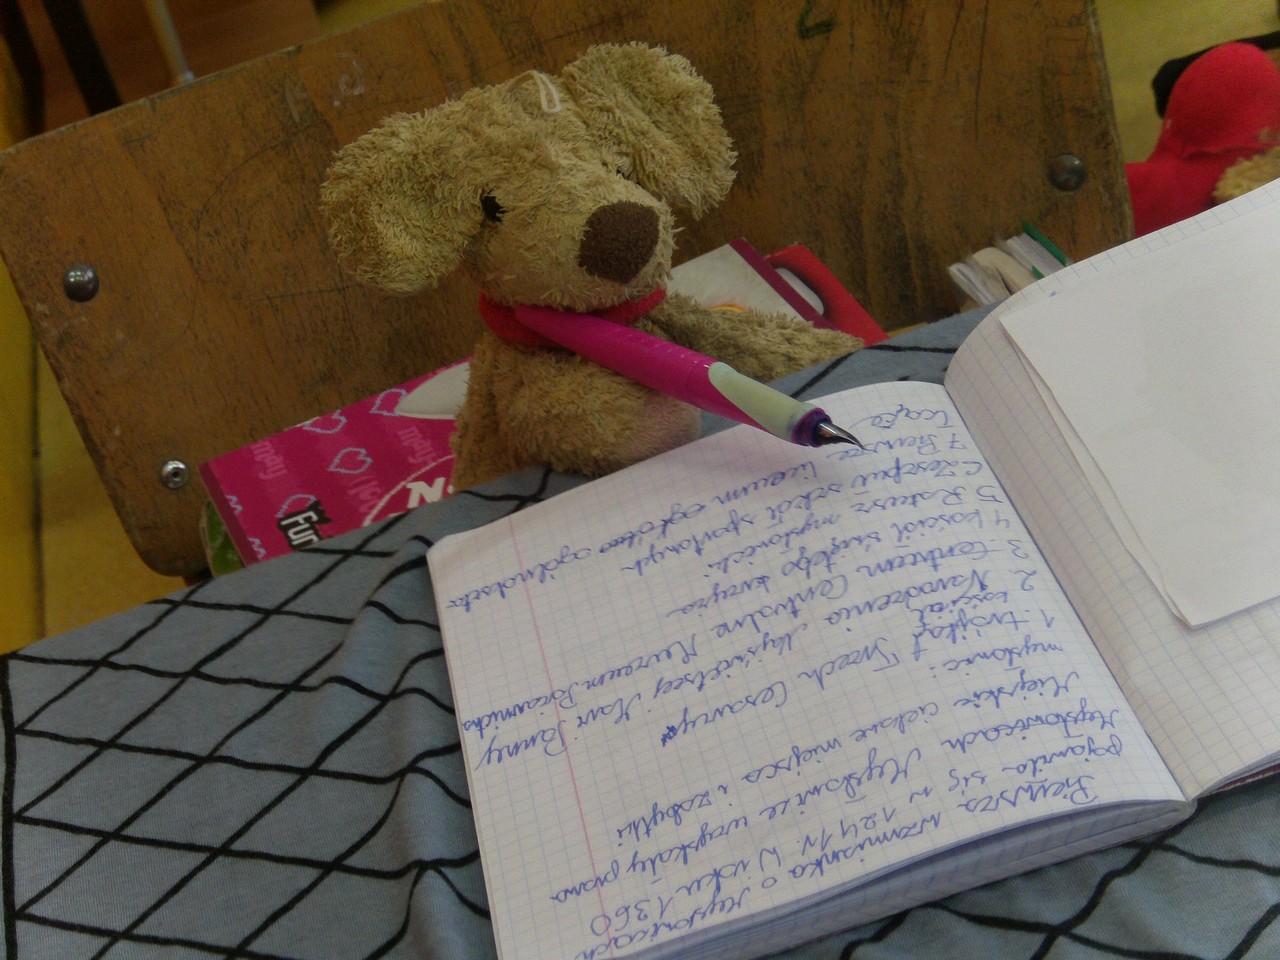 Pierwsza wzmianka o Mysowicach
pojawiła się w 1241r. W roku 1360
Mysłowicach Mysłowice uzyskały prawa
Miejskie ciekawe miejsca i zabytki
mysłowic:
1. trójkąt Trzech Cesarzy
kościół
2 Narodzenia Najświetszej Marii Panny
3. Centralne Muzeum Pożarnictwa
4 kościół świętego krzyża
5 Ratusz mysłowicki
Zespół szkół sportowych
7 Pierwsze liceum
Fun